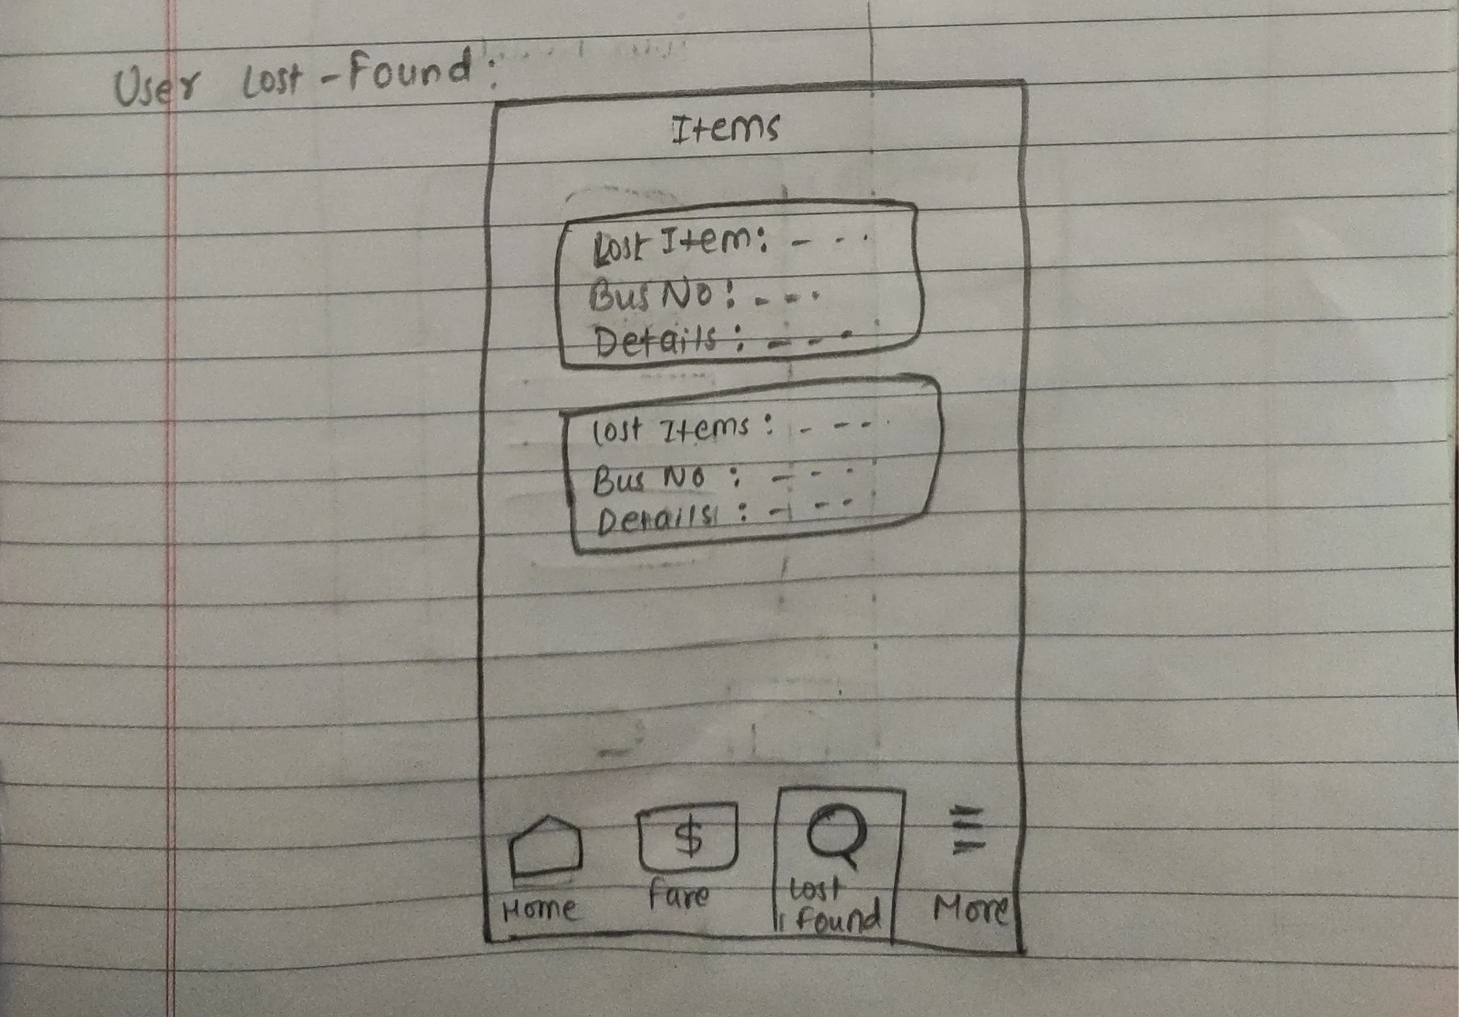 User Lost-Found:
Items
Lost Item: - - -
Bus No: - - -
Details: - - -
Lost Items: - - - -
Bus No : - - - -
Details : - - - -
$
Home
Fare
Lost
Found
More